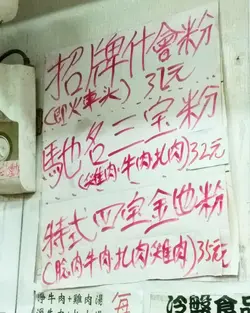 招牌什會粉
(即火車头) 31元
馳名三宝粉
(雞肉·牛肉·扎肉) 32元
特式四宝金边粉
(脸肉·牛肉·扎肉·雞肉) 35元
淨牛肉+雞肉湯
每
冷盤食品